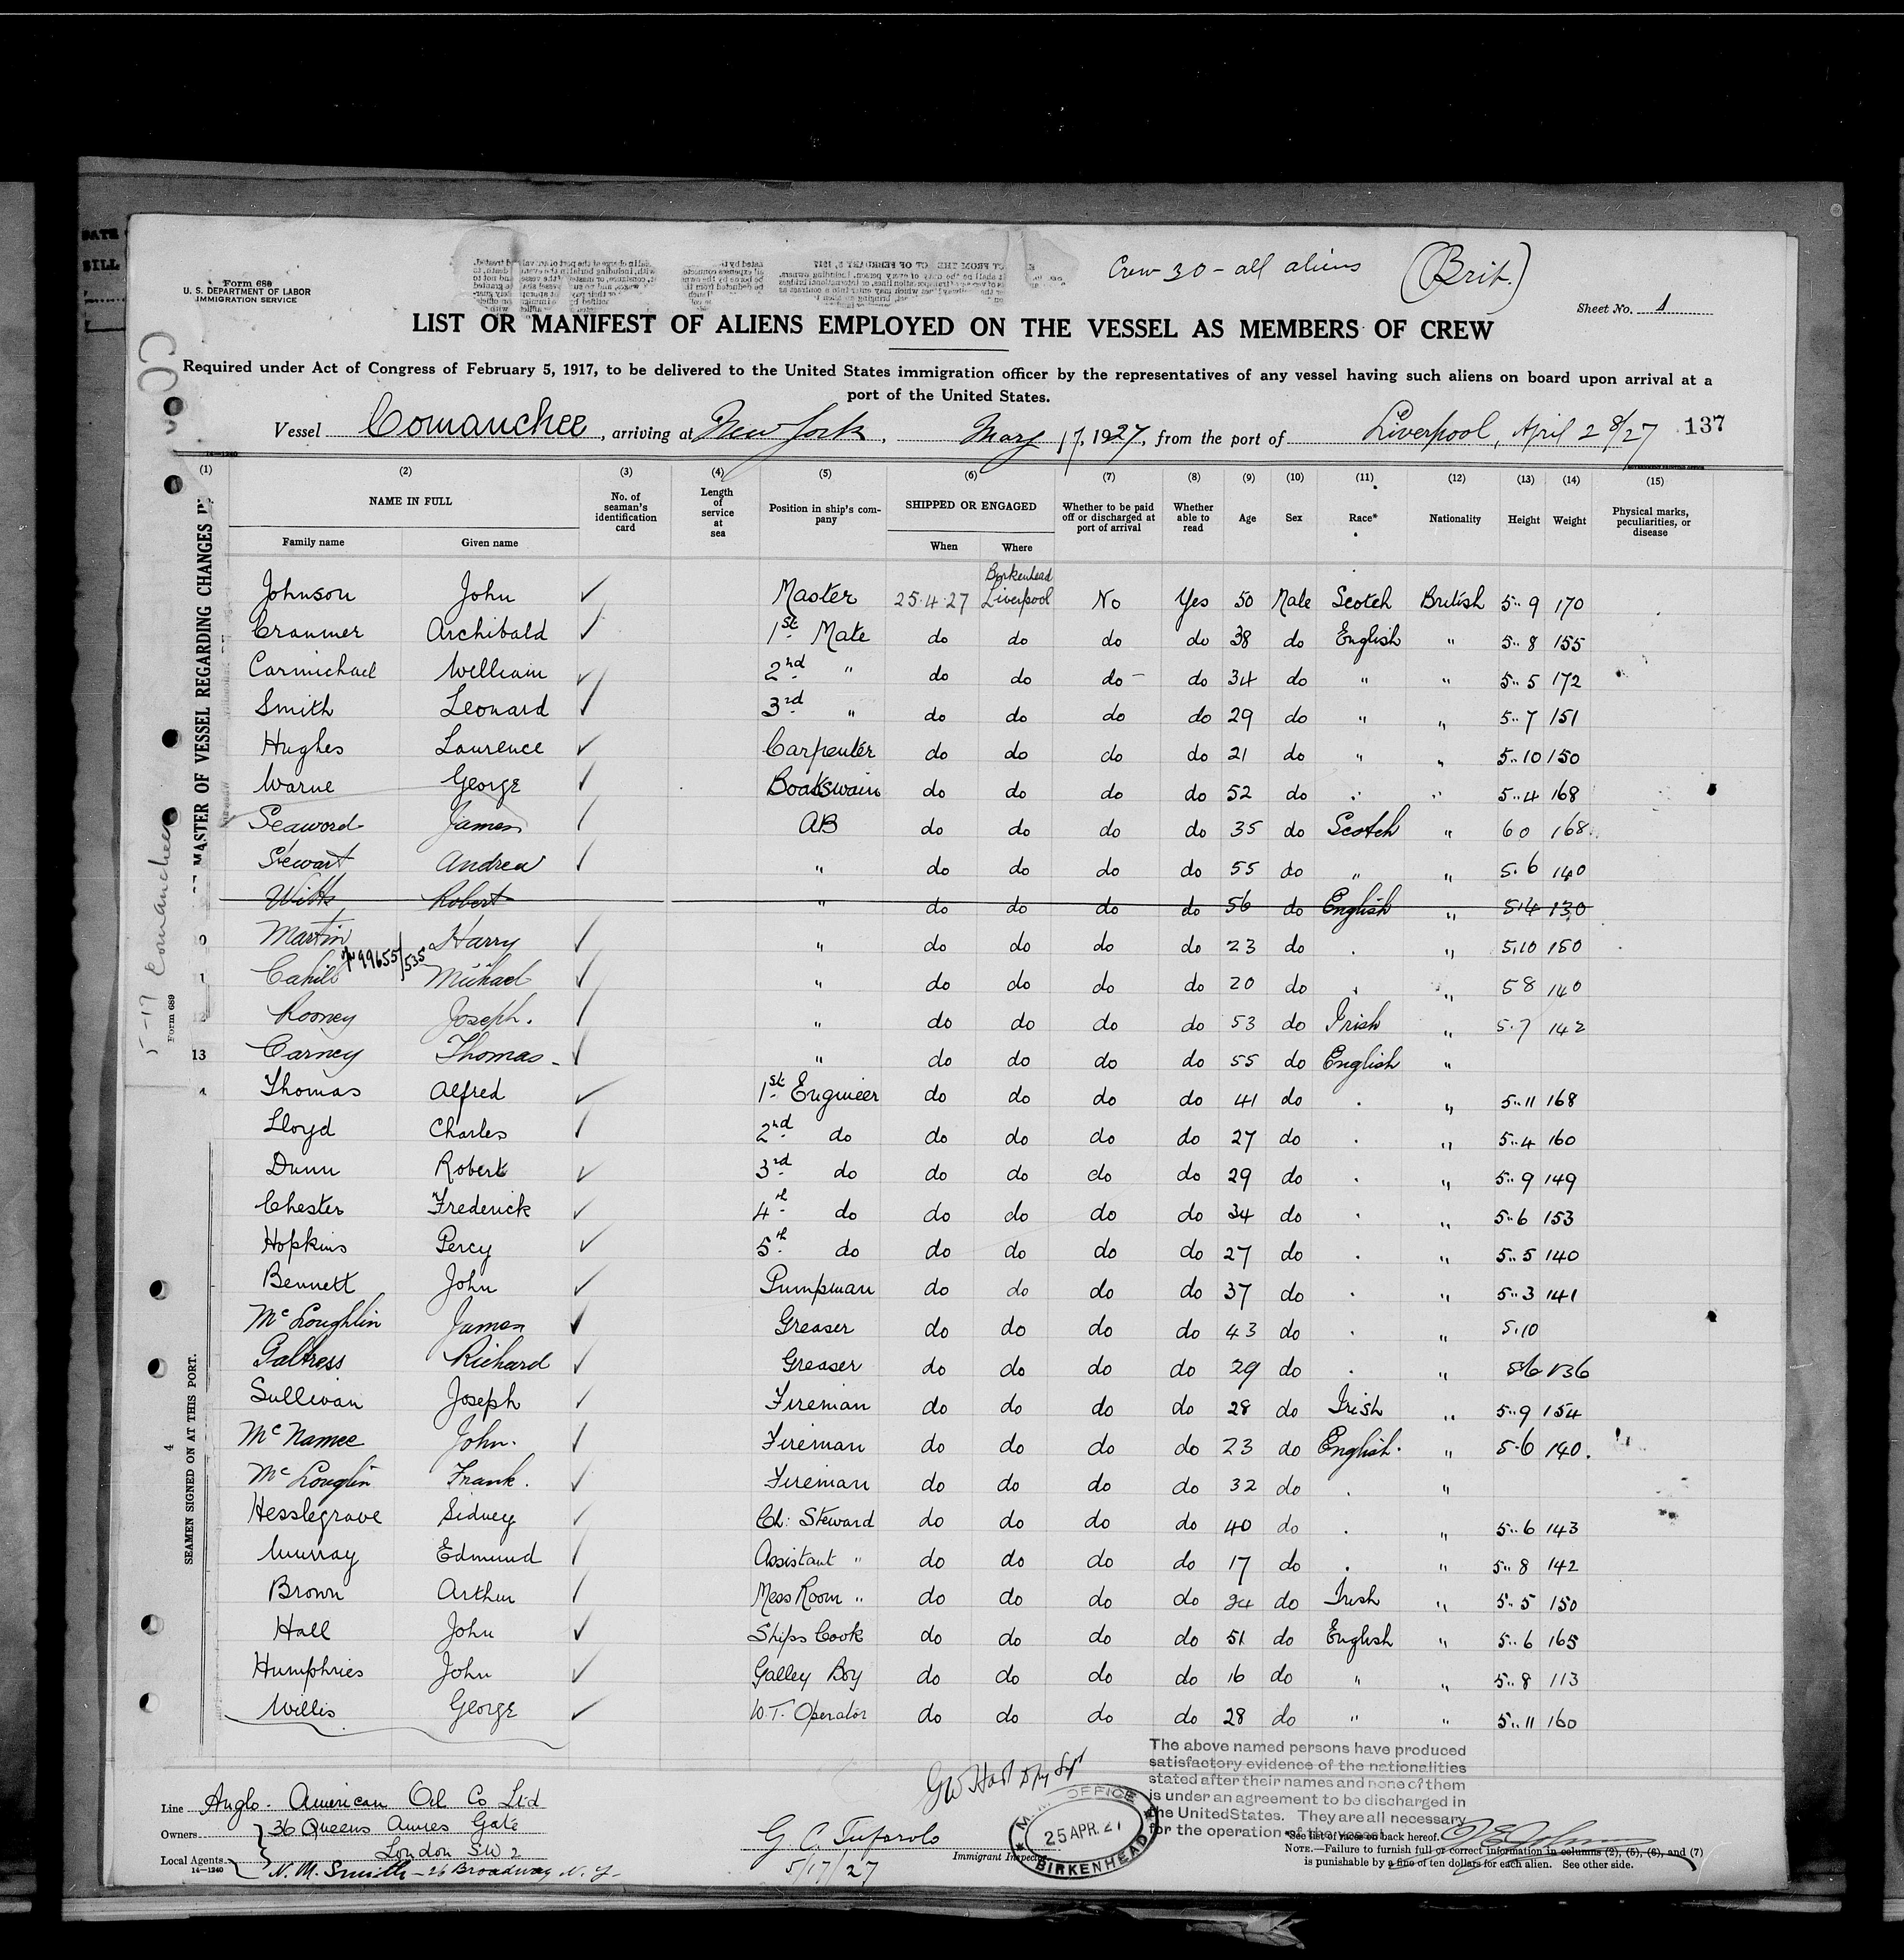 Crew 30 - all aliens (Brit.)
Form 689
U. S. DEPARTMENT OF LABOR
IMMIGRATION SERVICE
Sheet No. 1
LIST OR MANIFEST OF ALIENS EMPLOYED ON THE VESSEL AS MEMBERS OF CREW
Required under Act of Congress of February 5, 1917, to be delivered to the United States immigration officer by the representatives of any vessel having such aliens on board upon arrival at a
port of the United States.
Vessel Comanchee, arriving at New York, May 17, 1927, from the port of Liverpool, April 28/27 137
(1) (2) (3) (4) (5) (6) (7) (8) (9) (10) (11) (12) (13) (14) (15)
NAME IN FULL No. of seaman's identification card Length of service at sea Position in ship's company SHIPPED OR ENGAGED Whether to be paid off or discharged at port of arrival Whether able to read Age Sex Race* Nationality Height Weight Physical marks, peculiarities, or disease
Family name Given name When Where
Birkenhead
Johnson John ✓ Master 25.4.27 Liverpool No Yes 50 Male Scotch British 5..9 170
Cranmer Archibald ✓ 1st Mate do do do do 38 do English " 5..8 155
Carmichael William ✓ 2nd " do do do - do 34 do " " 5..5 172
Smith Leonard ✓ 3rd " do do do do 29 do " " 5..7 151
Hughes Laurence ✓ Carpenter do do do do 21 do " " 5..10 150
Warne George ✓ Boatswain do do do do 52 do " " 5..4 168
Seaword James / AB do do do do 35 do Scotch " 6 0 168
Stewart Andrew ✓ " do do do do 55 do " " 5.6 140
Witts Robert " do do do do 56 do English " 5.4 130
Martin Harry ✓ " do do do do 23 do . " 5.10 150
99655/535
Cahill Michael ✓ " do do do do 20 do . " 5 8 140
Rooney Joseph. / " do do do do 53 do Irish " 5.7 142
13 Carney Thomas - ✓ " do do do do 55 do English "
Thomas Alfred ✓ 1st Engineer do do do do 41 do . " 5..11 168
Lloyd Charles ✓ 2nd do do do do do 27 do . " 5..4 160
Dunn Robert ✓ 3rd do do do do do 29 do . " 5..9 149
Chester Frederick ✓ 4th do do do do do 34 do . " 5..6 153
Hopkins Percy ✓ 5th do do do do do 27 do . " 5..5 140
Bennett John ✓ Pumpman do do do do 37 do . " 5..3 141
McLoughlin James ✓ Greaser do do do do 43 do . " 5.10
Galtress Richard ✓ Greaser do do do do 29 do . " 5.6 136
Sullivan Joseph ✓ Fireman do do do do 28 do Irish " 5..9 154
McNamee John. / Fireman do do do do 23 do English. " 5.6 140.
McLouglin Frank. ✓ Fireman do do do do 32 do . "
Hesslegrave Sidney ✓ Ch: Steward do do do do 40 do . " 5..6 143
Murray Edmund / Assistant " do do do do 17 do . " 5..8 142
Brown Arthur / Mess Room " do do do do 24 do Irish " 5..5 150
Hall John ✓ Ships Cook do do do do 51 do English " 5..6 165
Humphries John ✓ Galley Boy do do do do 16 do " " 5..8 113
Willis George ✓ W.T. Operator do do do do 28 do " " 5..11 160
The above named persons have produced
satisfactory evidence of the nationalities
stated after their names and none of them
is under an agreement to be discharged in
the United States. They are all necessary
for the operation of the vessel.
Line Anglo. American Oil Co Ltd
Owners 36 Queens Annes Gate
London SW 2
Local Agents N. M. Smith - 26 Broadway N. Y.
14-1240
5/17/27
Immigrant Inspector
OFFICE
25 APR. 27
BIRKENHEAD
*See list of races on back hereof.
NOTE.—Failure to furnish full or correct information in columns (2), (5), (6), and (7)
is punishable by a fine of ten dollars for each alien. See other side.
MASTER OF VESSEL REGARDING CHANGES IN
SEAMEN SIGNED ON AT THIS PORT.
4
Form 689
5-17 Comanchee